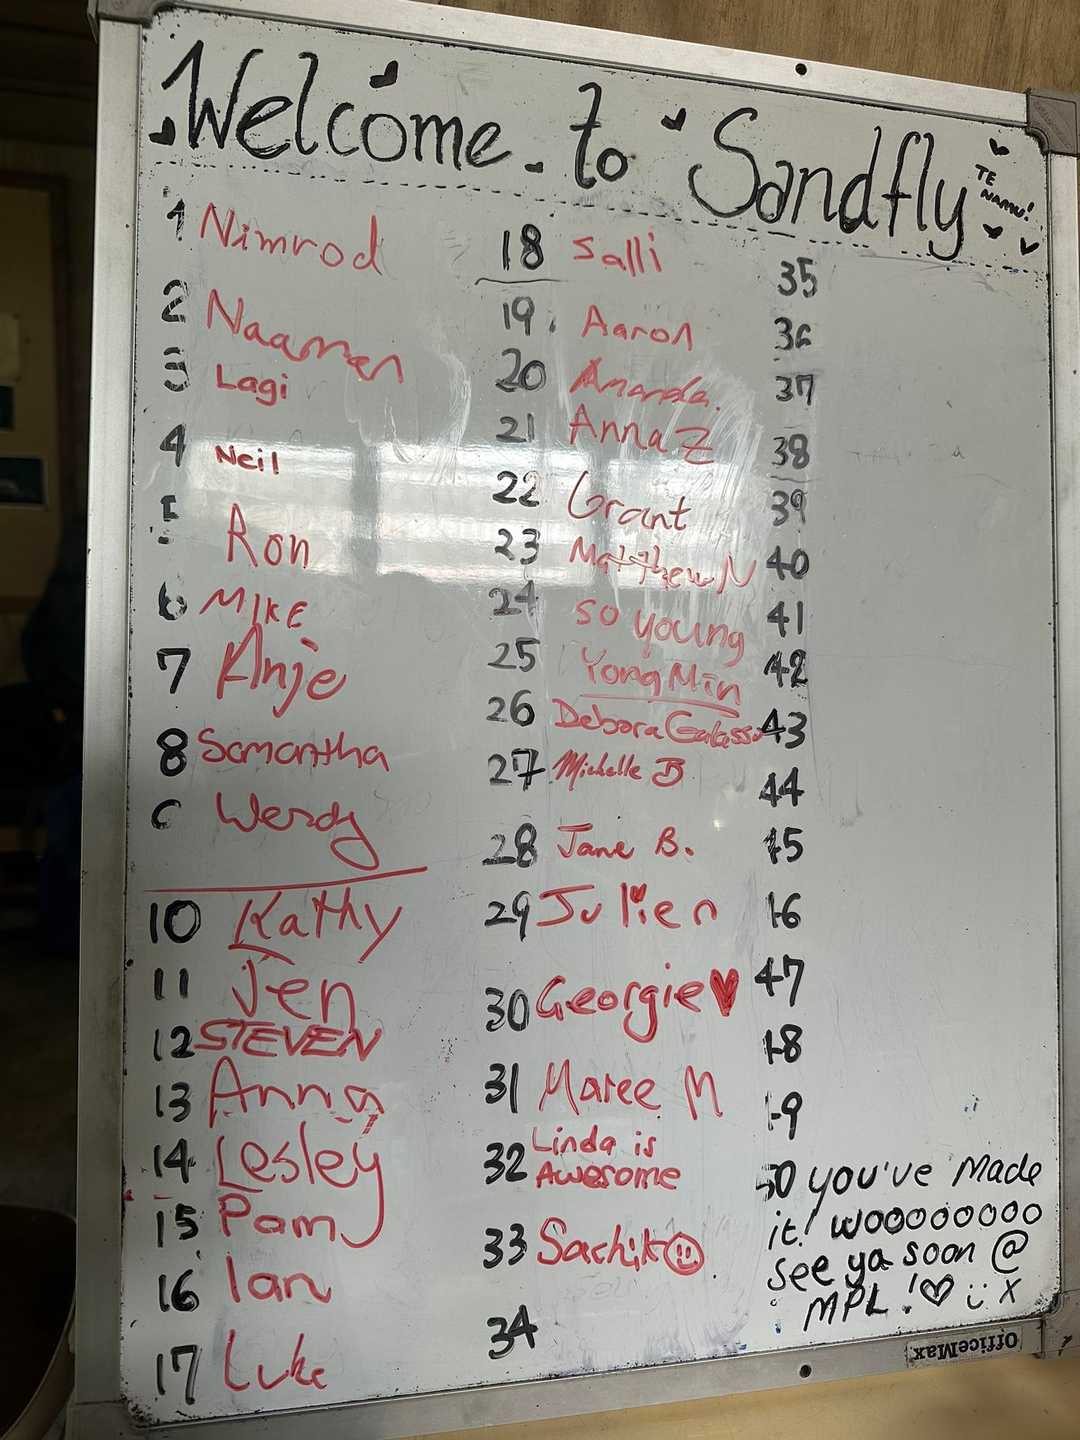 Welcome to Sandfly
TE NAMU!
1 Nimrod
2 Naaman
3 Lagi
4 Neil
5 Ron
6 MIKE
7 Anje
8 Samantha
Wendy
10 Kathy
11 Jen
12 STEVEN
13 Anna
14 Lesley
15 Pam
16 Ian
17 Luke
18 Salli
19. Aaron
20 Amanda.
21 Anna Z
22 Grant
23 Matthew N
24 so young
25 Yong Min
26 Debora
27 Michelle B
28 Jane B.
29 Julien
30 Georgie ♥
31 Maree M
32 Linda is
Awesome
33 Sachiko ☺
34
35
36
37
38
39
40
41
42
43
44
45
46
47
48
49
50 you've Made
it! WOOOOOOOO
see ya soon @
MPL! ♡ ü x
OfficeMax